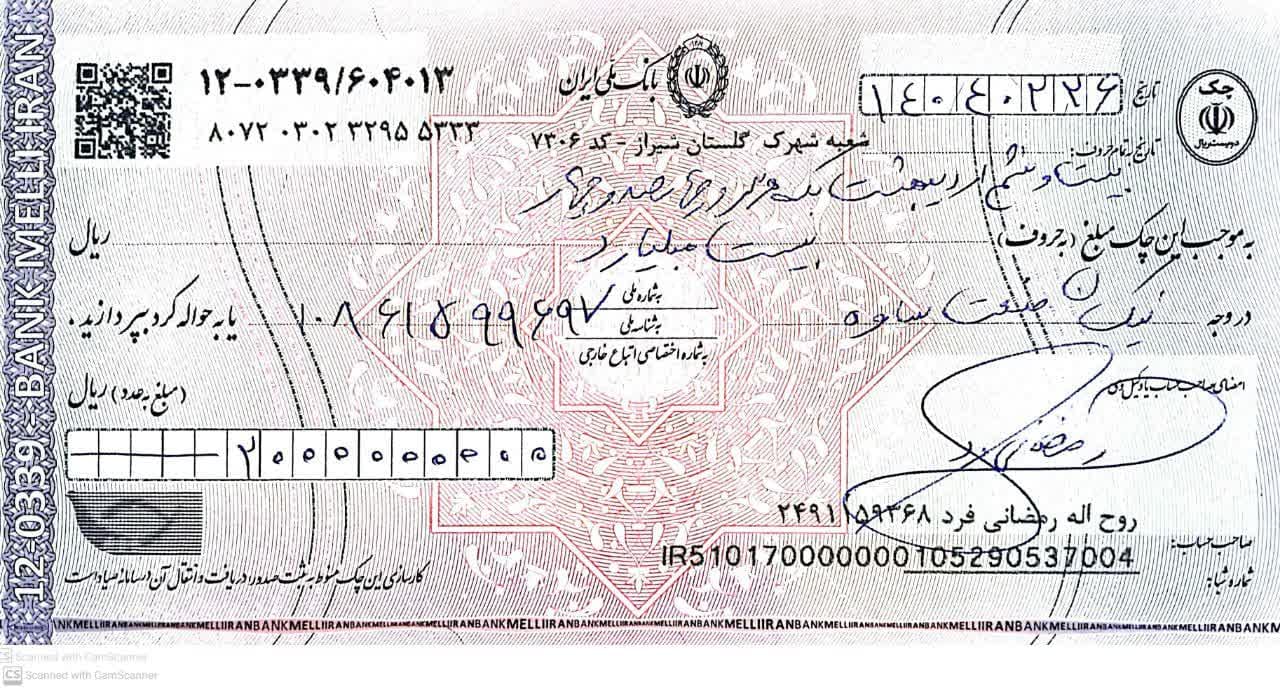 BANK MELLI IRAN
12-0339
۱۲-۰۳۳۹/۶۰۴۰۱۳
۸۰۷۲ ۰۳۰۲ ۳۲۹۵ ۵۳۲۳
بانک ملی ایران
شعبه شهرک گلستان شیراز - کد ۷۳۰۶
چک
دویست ریال
تاریخ ۱۴۰۴۰۲۲۶
تاریخ تمام حروف: بیست و ششم اردیبهشت یک هزار و چهارصد و چهار
به موجب این چک مبلغ (به حروف) بیست میلیارد ریال
در وجه صنعت ساوه
به شماره ملی
به شناسه ملی
به شماره اختصاصی اتباع خارجی
۱۰۸۶۱۵۹۹۶۹۷
یا به حواله کرد بپردازید.
(مبلغ به عدد) ریال
۲۰۰۰۰۰۰۰۰۰۰
امضای صاحب حساب یا وکیل وی
صاحب حساب: روح اله رمضانی فرد ۲۴۹۱۱۵۹۳۶۸
شماره شبا: IR510170000000105290537004
کارسازی این چک منوط به ثبت صدور، دریافت و انتقال آن در سامانه صیاد است
BANKMELLIIRANBANKMELLIIRANBANKMELLIIRANBANKMELLIIRAN
CS Scanned with CamScanner
CS Scanned with CamScanner